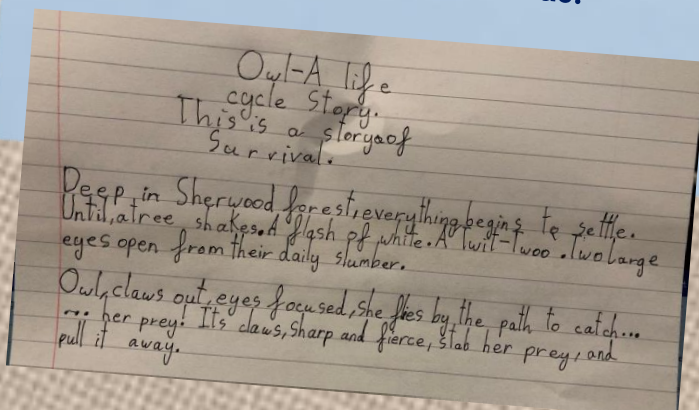 Owl-A life
cycle story.
This is a story of
Survival.
Deep in Sherwood forest, everything begins to settle.
Until, a tree shakes. A flash of white. A Twit-Twoo. Two large
eyes open from their daily slumber.
Owl, claws out, eyes focused, she flies by the path to catch...
... her prey! Its claws, sharp and fierce, stab her prey, and
pull it away.